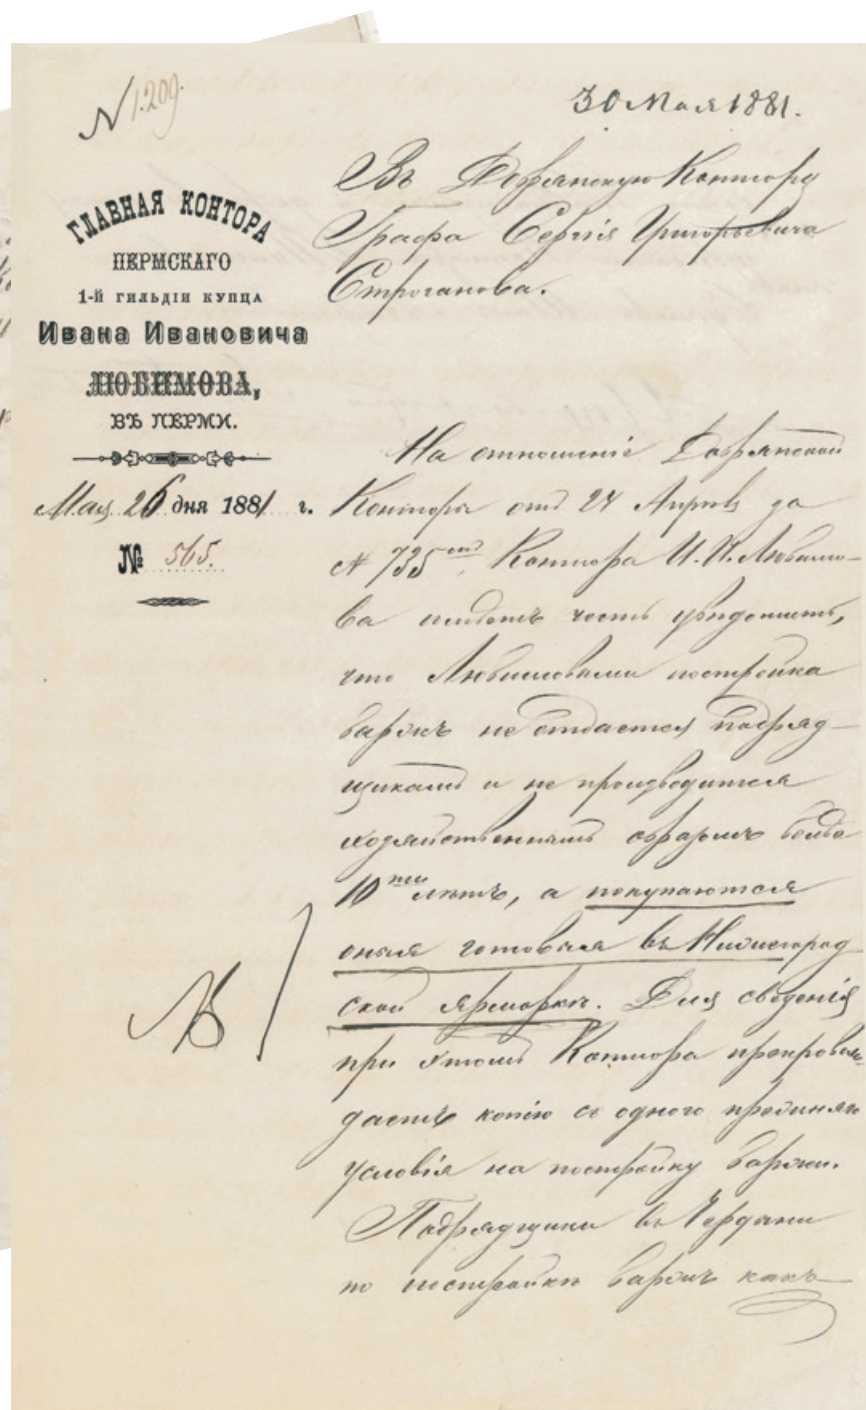 N 1.209.
30 Мая 1881.
ГЛАВНАЯ КОНТОРА
ПЕРМСКАГО
1-й ГИЛЬДІИ КУПЦА
Ивана Ивановича
ЛЮБИМОВА,
ВЪ ПЕРМИ.
Мая 26 дня 1881 г.
№ 565.
Въ Добрянскую Контору
Графа Сергія Григорьевича
Строганова.
На отношеніе Добрянской
Конторы отъ 24 Апрѣля за
№ 735 Контора И. И. Любимо-
ва имѣетъ честь увѣдомить,
что Любимовыми постройка
баржъ не отдается подряд-
щикамъ и не производится
хозяйственнымъ образомъ болѣе
10ти лѣтъ, а покупаются
оныя готовыя въ Нижегород-
ской ярмаркѣ. Для свѣденія
при этомъ Контора препровож-
даетъ копію съ одного прежняго
условія на постройку баржи.
Подрядчики въ Чердыни
по постройкѣ баржъ какъ